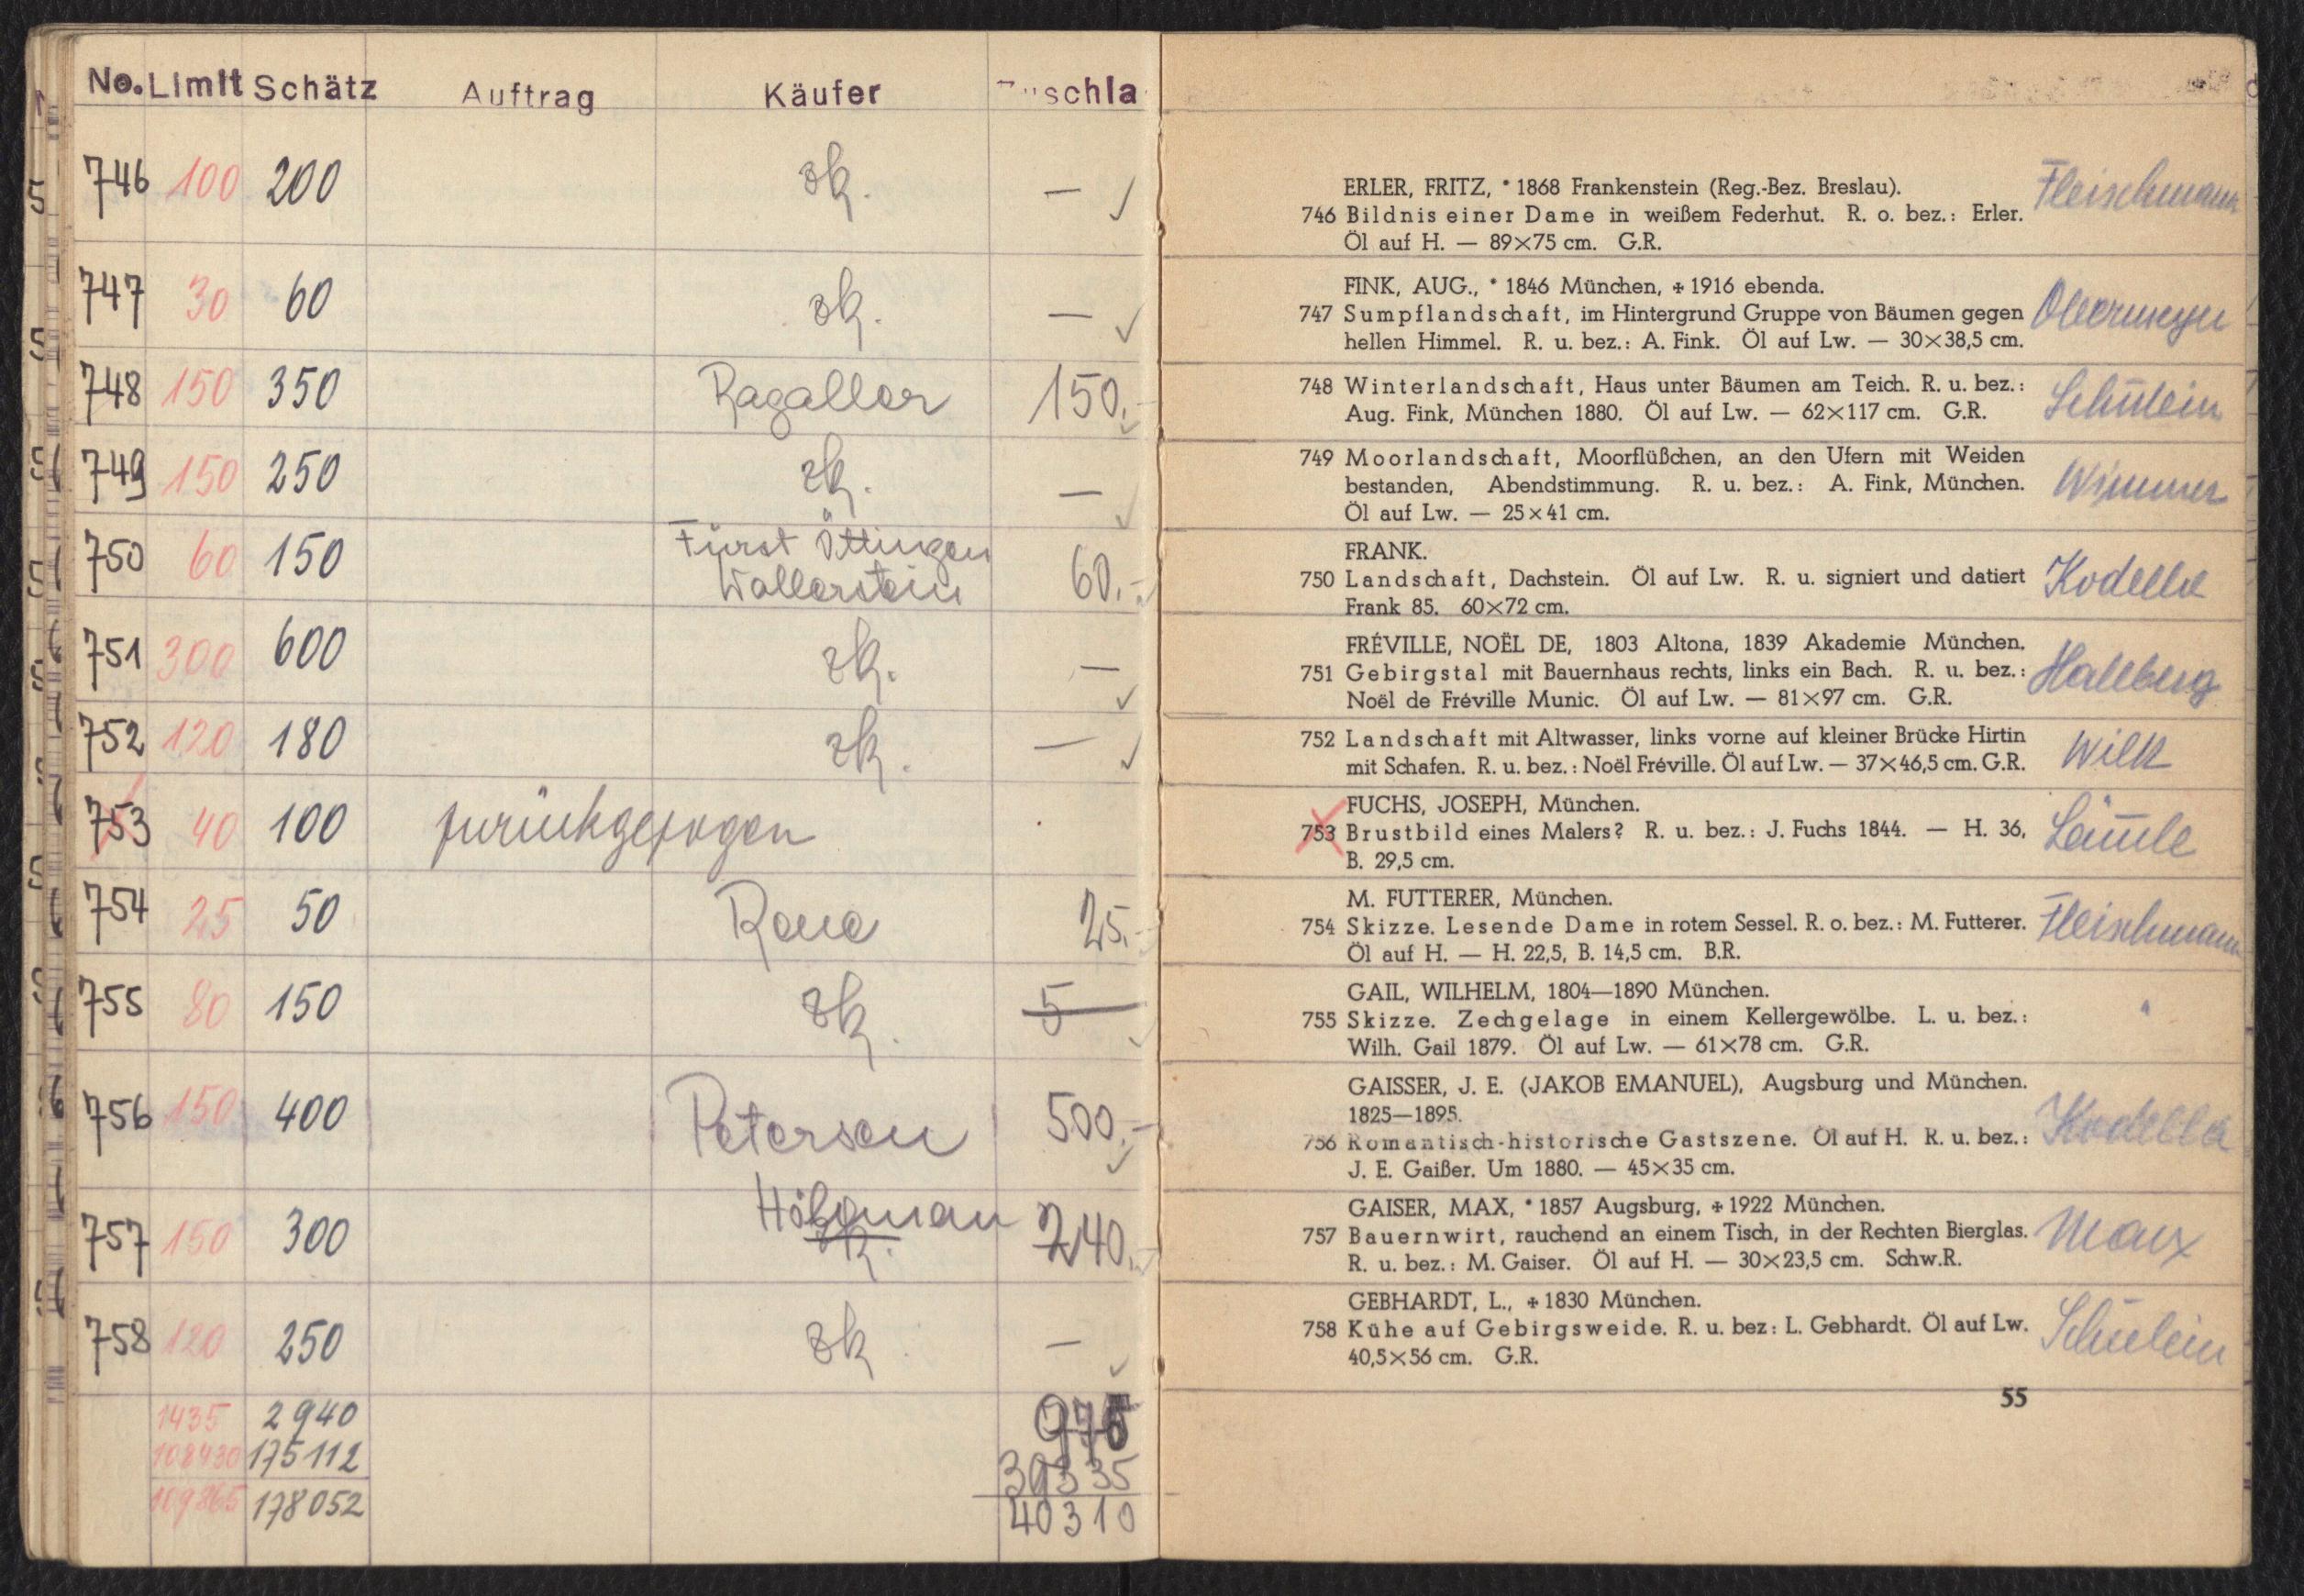 No. Limit Schätz Auftrag Käufer schla
746 100 200 zk. —
747 30 60 zk. —
748 150 350 Ragaller 150.-
749 150 250 zk. —
750 60 150 Fürst Öttingen Wallerstein 60.-
751 300 600 zk. —
752 120 180 zk. —
753 40 100 zurückgezogen
754 25 50 25.-
755 80 150 zk. 5
756 150 400 Petersen 500.-
757 150 300 zk. 240.-
758 120 250 zk —
1435 2940 975
108430 175112 39335
109865 178052 40310
ERLER, FRITZ, * 1868 Frankenstein (Reg.-Bez. Breslau). Fleischmann
746 Bildnis einer Dame in weißem Federhut. R. o. bez.: Erler.
Öl auf H. — 89×75 cm. G.R.
FINK, AUG., * 1846 München, ✠ 1916 ebenda.
747 Sumpflandschaft, im Hintergrund Gruppe von Bäumen gegen Obermeyer
hellen Himmel. R. u. bez.: A. Fink. Öl auf Lw. — 30×38,5 cm.
748 Winterlandschaft, Haus unter Bäumen am Teich. R. u. bez.: Schülein
Aug. Fink, München 1880. Öl auf Lw. — 62×117 cm. G.R.
749 Moorlandschaft, Moorflüßchen, an den Ufern mit Weiden
bestanden, Abendstimmung. R. u. bez.: A. Fink, München. Wimmer
Öl auf Lw. — 25×41 cm.
FRANK.
750 Landschaft, Dachstein. Öl auf Lw. R. u. signiert und datiert Kodella
Frank 85. 60×72 cm.
FRÉVILLE, NOËL DE, 1803 Altona, 1839 Akademie München.
751 Gebirgstal mit Bauernhaus rechts, links ein Bach. R. u. bez.: Hallberg
Noël de Fréville Munic. Öl auf Lw. — 81×97 cm. G.R.
752 Landschaft mit Altwasser, links vorne auf kleiner Brücke Hirtin Wilk
mit Schafen. R. u. bez.: Noël Fréville. Öl auf Lw. — 37×46,5 cm. G.R.
FUCHS, JOSEPH, München.
753 Brustbild eines Malers? R. u. bez.: J. Fuchs 1844. — H. 36, Läm̄le
B. 29,5 cm.
M. FUTTERER, München.
754 Skizze. Lesende Dame in rotem Sessel. R. o. bez.: M. Futterer. Fleischmann
Öl auf H. — H. 22,5, B. 14,5 cm. B.R.
GAIL, WILHELM, 1804—1890 München.
755 Skizze. Zechgelage in einem Kellergewölbe. L. u. bez.: "
Wilh. Gail 1879. Öl auf Lw. — 61×78 cm. G.R.
GAISSER, J. E. (JAKOB EMANUEL), Augsburg und München.
1825—1895.
756 Romantisch-historische Gastszene. Öl auf H. R. u. bez.: Kodella
J. E. Gaißer. Um 1880. — 45×35 cm.
GAISER, MAX, * 1857 Augsburg, ✠ 1922 München.
757 Bauernwirt, rauchend an einem Tisch, in der Rechten Bierglas. Marx
R. u. bez.: M. Gaiser. Öl auf H. — 30×23,5 cm. Schw.R.
GEBHARDT, L., ✠ 1830 München.
758 Kühe auf Gebirgsweide. R. u. bez: L. Gebhardt. Öl auf Lw. Schülein
40,5×56 cm. G.R.
55